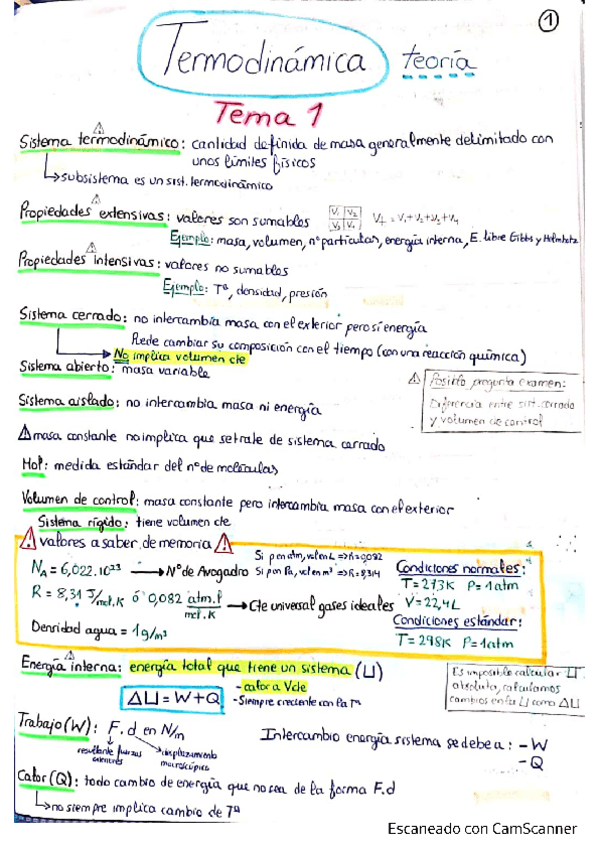 1
Termodinámica teoría
Tema 1
Sistema termodinámico: cantidad definida de masa generalmente delimitado con
unos límites físicos
subsistema es un sist. termodinámico
Propiedades extensivas: valores son sumables V₁ V₂ V₃ V₄ V_t = V₁+V₂+V₃+V₄
Ejemplo: masa, volumen, nº partículas, energía interna, E. libre Gibbs y Helmholtz
Propiedades intensivas: valores no sumables
Ejemplo: Tª, densidad, presión
Sistema cerrado: no intercambia masa con el exterior pero sí energía
Puede cambiar su composición con el tiempo (con una reacción química)
No implica volumen cte
Sistema abierto: masa variable
Posible pregunta examen:
Diferencia entre sist. cerrado
y volumen de control
Sistema aislado: no intercambia masa ni energía
masa constante no implica que se trate de sistema cerrado
Mol: medida estándar del nº de moléculas
Volumen de control: masa constante pero intercambia masa con el exterior
Sistema rígido: tiene volumen cte
valores a saber de memoria
N_A = 6,022.10²³ → Nº de Avogadro
Si p en atm, vol en L ⇒ R=0,082
Si p en Pa, vol en m³ ⇒ R=8,314
R = 8,31 J/mol.K ó 0,082 atm.l/mol.K → Cte universal gases ideales
Densidad agua = 1g/m³
Condiciones normales:
T = 273K P = 1 atm
V = 22,4L
Condiciones estándar:
T = 298K P = 1 atm
Energía interna: energía total que tiene un sistema (U)
ΔU = W + Q
- calor a V cte
- Siempre creciente con la Tª
Es imposible calcular U
absoluta, calculamos
cambios en la U como ΔU
Trabajo (W): F.d en N/m
resultante fuerzas exteriores
desplazamiento macroscópico
Intercambio energía sistema se debe a: - W
- Q
Calor (Q): todo cambio de energía que no sea de la forma F.d
no siempre implica cambio de Tª
Escaneado con CamScanner